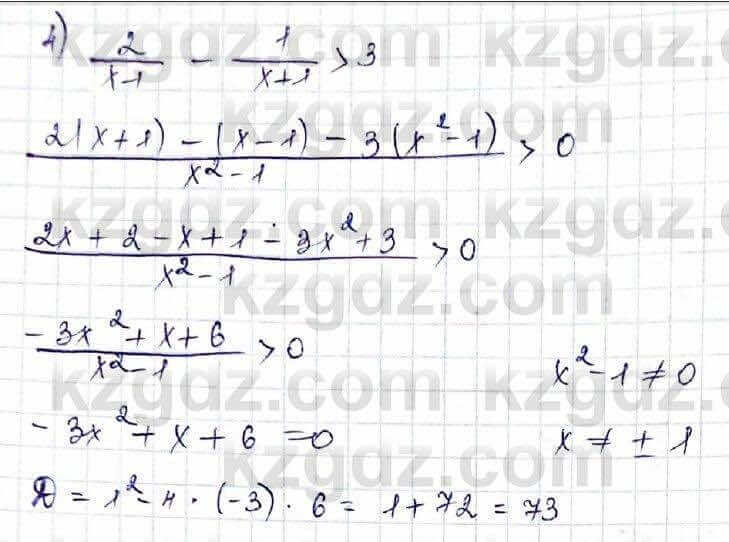 4) 2/(x-1) - 1/(x+1) > 3
(2(x+1) - (x-1) - 3(x²-1))/(x²-1) > 0
(2x+2-x+1-3x²+3)/(x²-1) > 0
(-3x²+x+6)/(x²-1) > 0
x²-1≠0
-3x²+x+6=0
x≠±1
D = 1²-4·(-3)·6 = 1+72 = 73
kzgdz.com
kzgdz.com
kzgdz.com
kzgdz.com
kzgdz.com
kzgdz.com